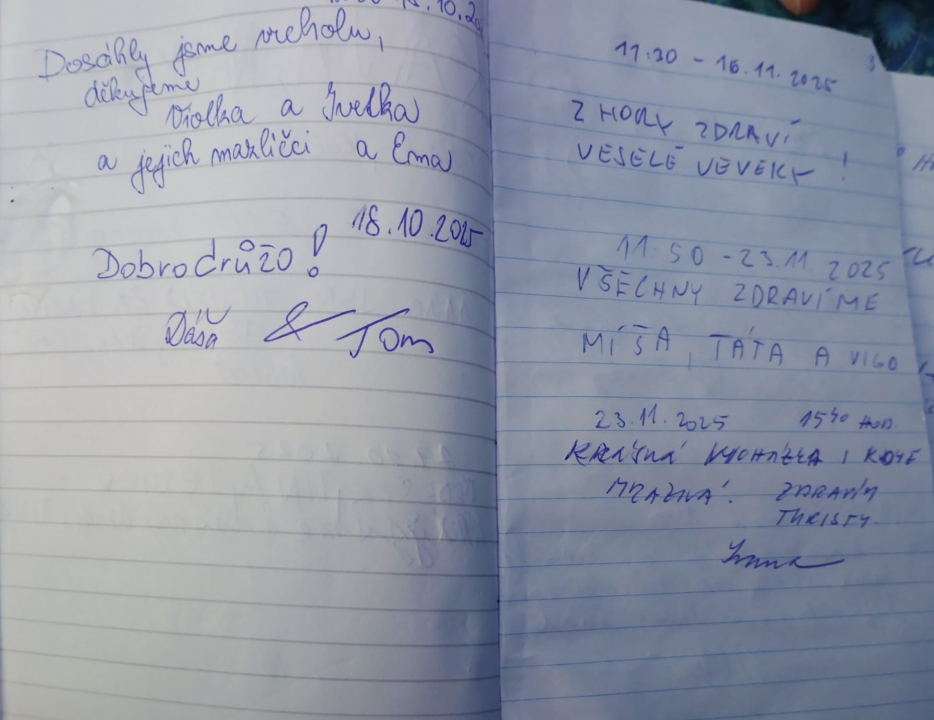 Dosáhly jsme vrcholu,
děkujeme
Violka a Ivetka
a jejich mazlíčci a Ema
18.10.2025
Dobrodrůžo!
Dáša & Tom
11:30 - 16.11.2025
Z HORY ZDRAVÍ
VESELÉ VEVERKY!
11:50 - 23.11.2025
VŠECHNY ZDRAVÍME
MÍŠA, TÁTA A VIGO
23.11.2025 15⁴⁰ HOD.
KRÁSNÁ VYCHÁZKA I KDYŽ
MRAZIVÁ. ZDRAVÍM
TURISTY